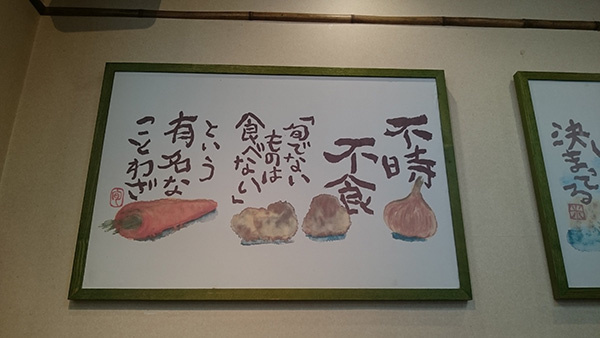 不時
不食
「旬でない
ものは
食べない」
という
有名な
「ことわざ
決まってる